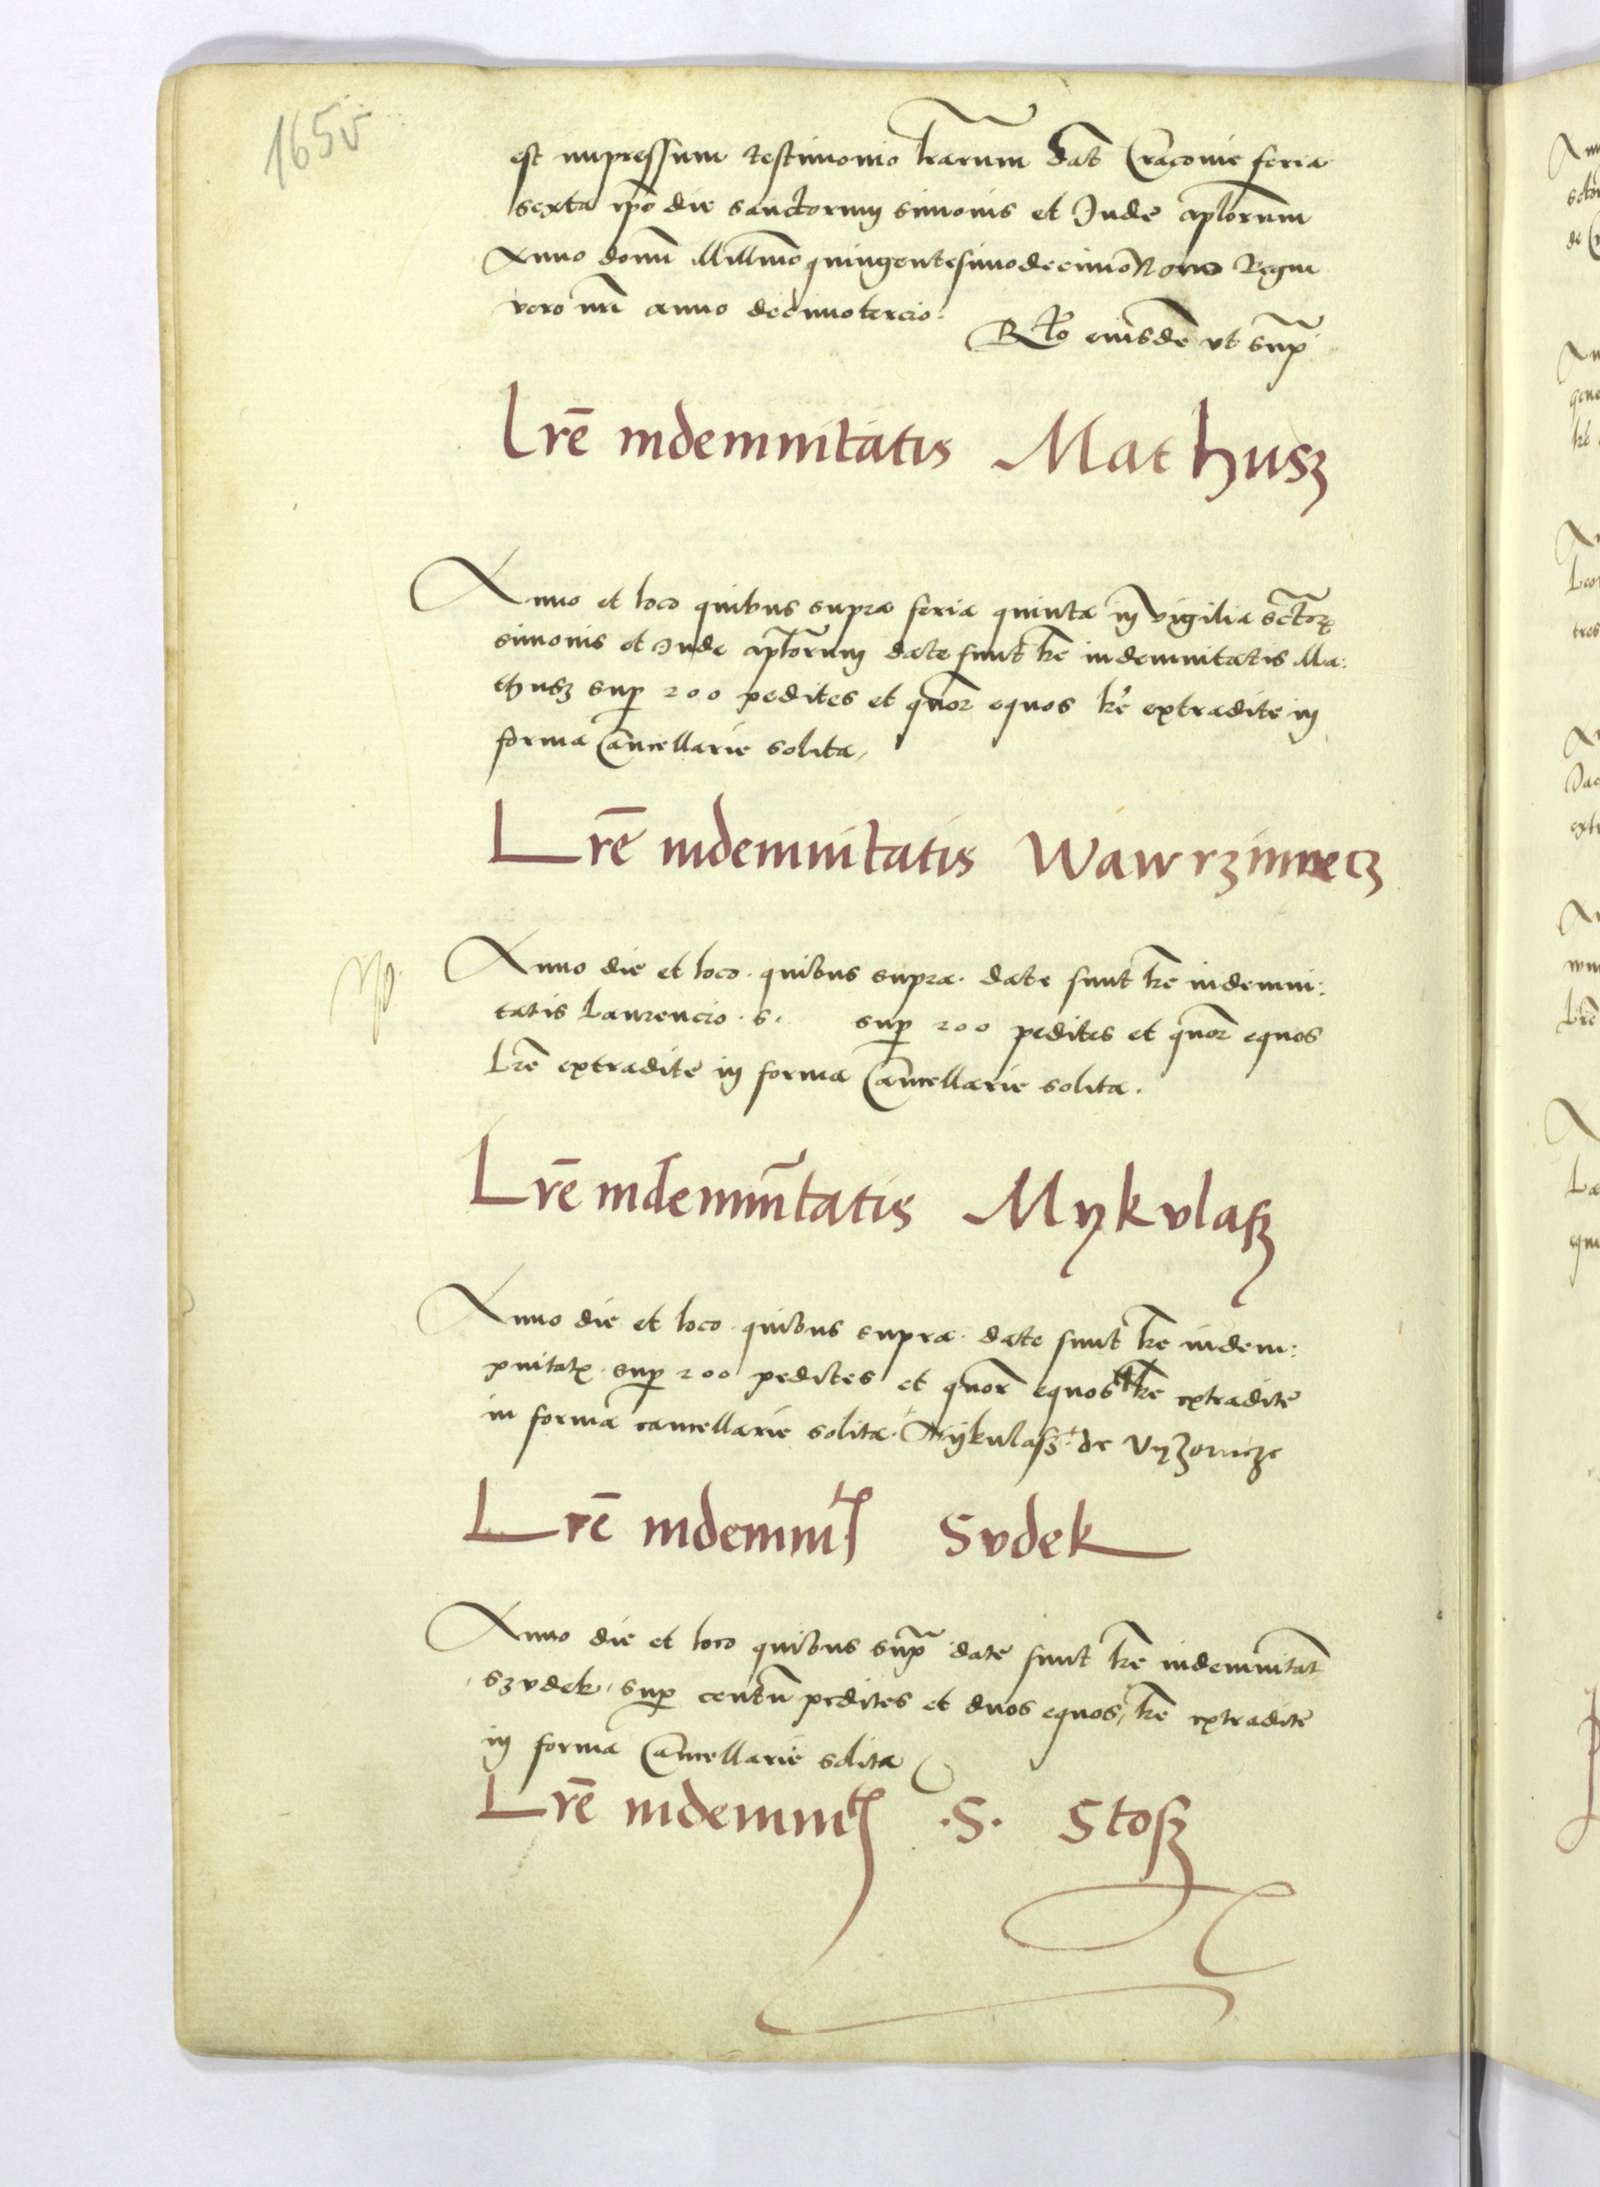 165v
est impressum testimonio lrarum dat Cracovie feria
sexta ipo die sanctorum simonis et Jude aplorum
Anno domi Millimo quingentesimodecimo Nono Regni
vero nri anno decimotercio.
Rlo eiusdē vt supra
Lrē indemnitatis Mathusz
Anno et loco quibus supra feria quinta in vigilia sctorꝝ
simonis et Jude aplorum date sunt lrē indemnitatis Ma:
thusz sup 200 pedites et quor equos lrē extradite in
forma Cancellarie solita,
Lrē indemnitatis Wawrziniecz
Anno die et loco quibus supra date sunt lrē indemni:
tatis Laurencio . s . sup 200 pedites et quor equos
Lrē extradite in forma Cancellarie solita.
Lrē indemnitatis Mykulasz
Anno die et loco quibus supra date sunt lrē indem:
pnitatꝭ sup 200 pedites et quor equos lrē extradite
in forma cancellarie solita. Mykulasz de
Lrē indemnit Sudek
Anno die et loco quibus supra date sunt lrē indemnitat
Szudek sup centū pedites et duos equos, lrē extradite
in forma Cancellarie solita
Lrē indemnit .S. Stosz